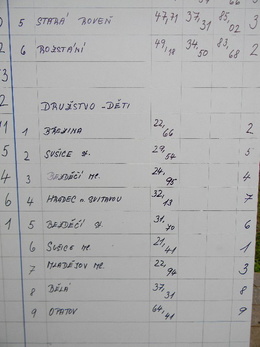 5 STARÁ ROVEŇ 47,71 37,31 85,02 3
6 ROZSTÁNÍ 49,18 34,50 83,68 2
DRUŽSTVO - DĚTI
1 BŘEZINA 22,66 2
2 SUŠICE st. 29,54 5
3 BEZDĚČÍ ml. 24,95 4
4 HRADEC n SVITAVOU 32,13 7
5 BEZDĚČÍ st. 31,70 6
6 SUŠICE ml. 21,41 1
7 MLADĚJOV ml. 22,94 3
8 BĚLÁ 37,31 8
9 OPATOV 64,41 9